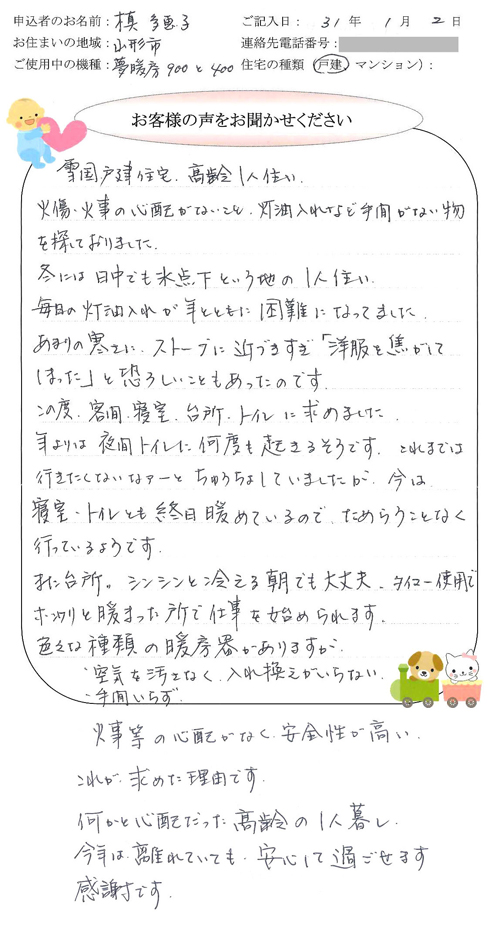 申込者のお名前：槙 多恵子
ご記入日： 31 年 1 月 2 日
お住まいの地域：山形市
連絡先電話番号：
ご使用中の機種：夢暖房900と400 住宅の種類（戸建、マンション）：
お客様の声をお聞かせください
雪国戸建住宅、高齢1人住い、
火傷・火事の心配がないこと、灯油入れなど手間がない物
を探しておりました。
冬には日中でも氷点下という地の1人住い、
毎日の灯油入れが年とともに困難になってました。
あまりの寒さに、ストーブに近づきすぎ「洋服を焦がして
しまった」と恐ろしいこともあったのです。
この度、客間、寝室、台所、トイレに求めました。
年よりは夜間トイレに何度も起きるそうです。これまでは
行きたくないなァーとちゅうちょしていましたが、今は
寝室・トイレとも終日暖めているので、ためらうことなく
行っているようです。
また台所。シンシンと冷える朝でも大丈夫、タイマー使用で
ホンワリと暖まった所で仕事を始められます。
色々な種類の暖房器がありますが、
・空気を汚さなく、入れ換えがいらない
・手間いらず
火事等の心配がなく、安全性が高い、
これが、求めた理由です。
何かと心配だった高齢の1人暮し、
今年は、離れていても、安心して過ごせます
感謝です。